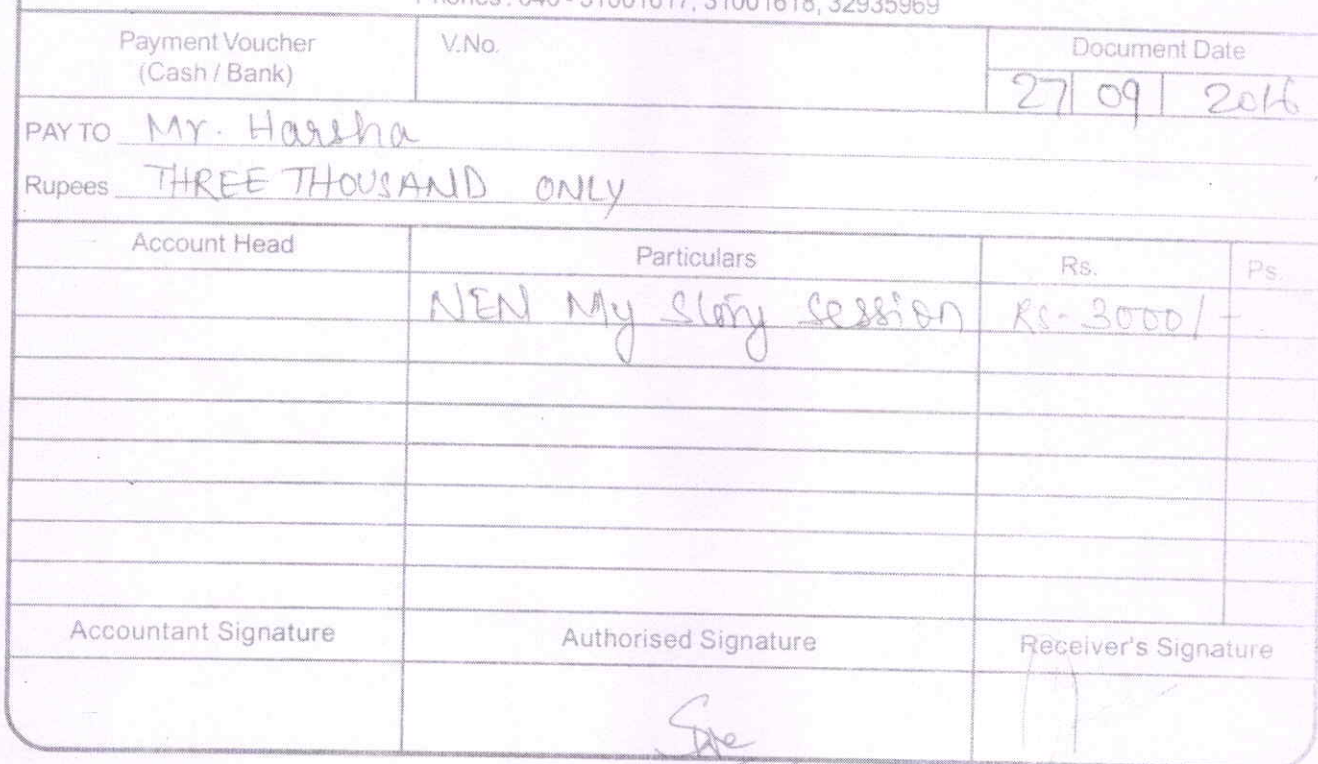 Phones : 040 - 31001617, 31001618, 32935969
Payment Voucher
(Cash / Bank)
V.No.
Document Date
27 09 2016
PAY TO Mr. Harsha
Rupees THREE THOUSAND ONLY
Account Head Particulars Rs. Ps.
NEN My Story Session Rs- 3000/-
Accountant Signature Authorised Signature Receiver's Signature